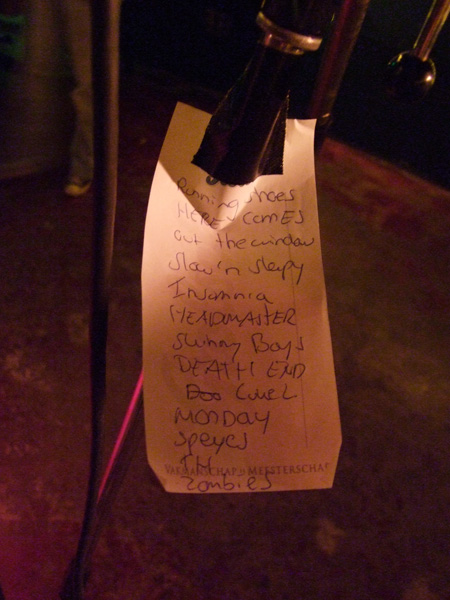 Running Shoes
HERE COMES
out the window
Slow'n Sleepy
Insomnia
HEADMASTER
Skinny Boys
DEATH END
LUKEL
MONDAY
Speyes
VAKMANSCHAP is MEESTERSCHAP
Zombies